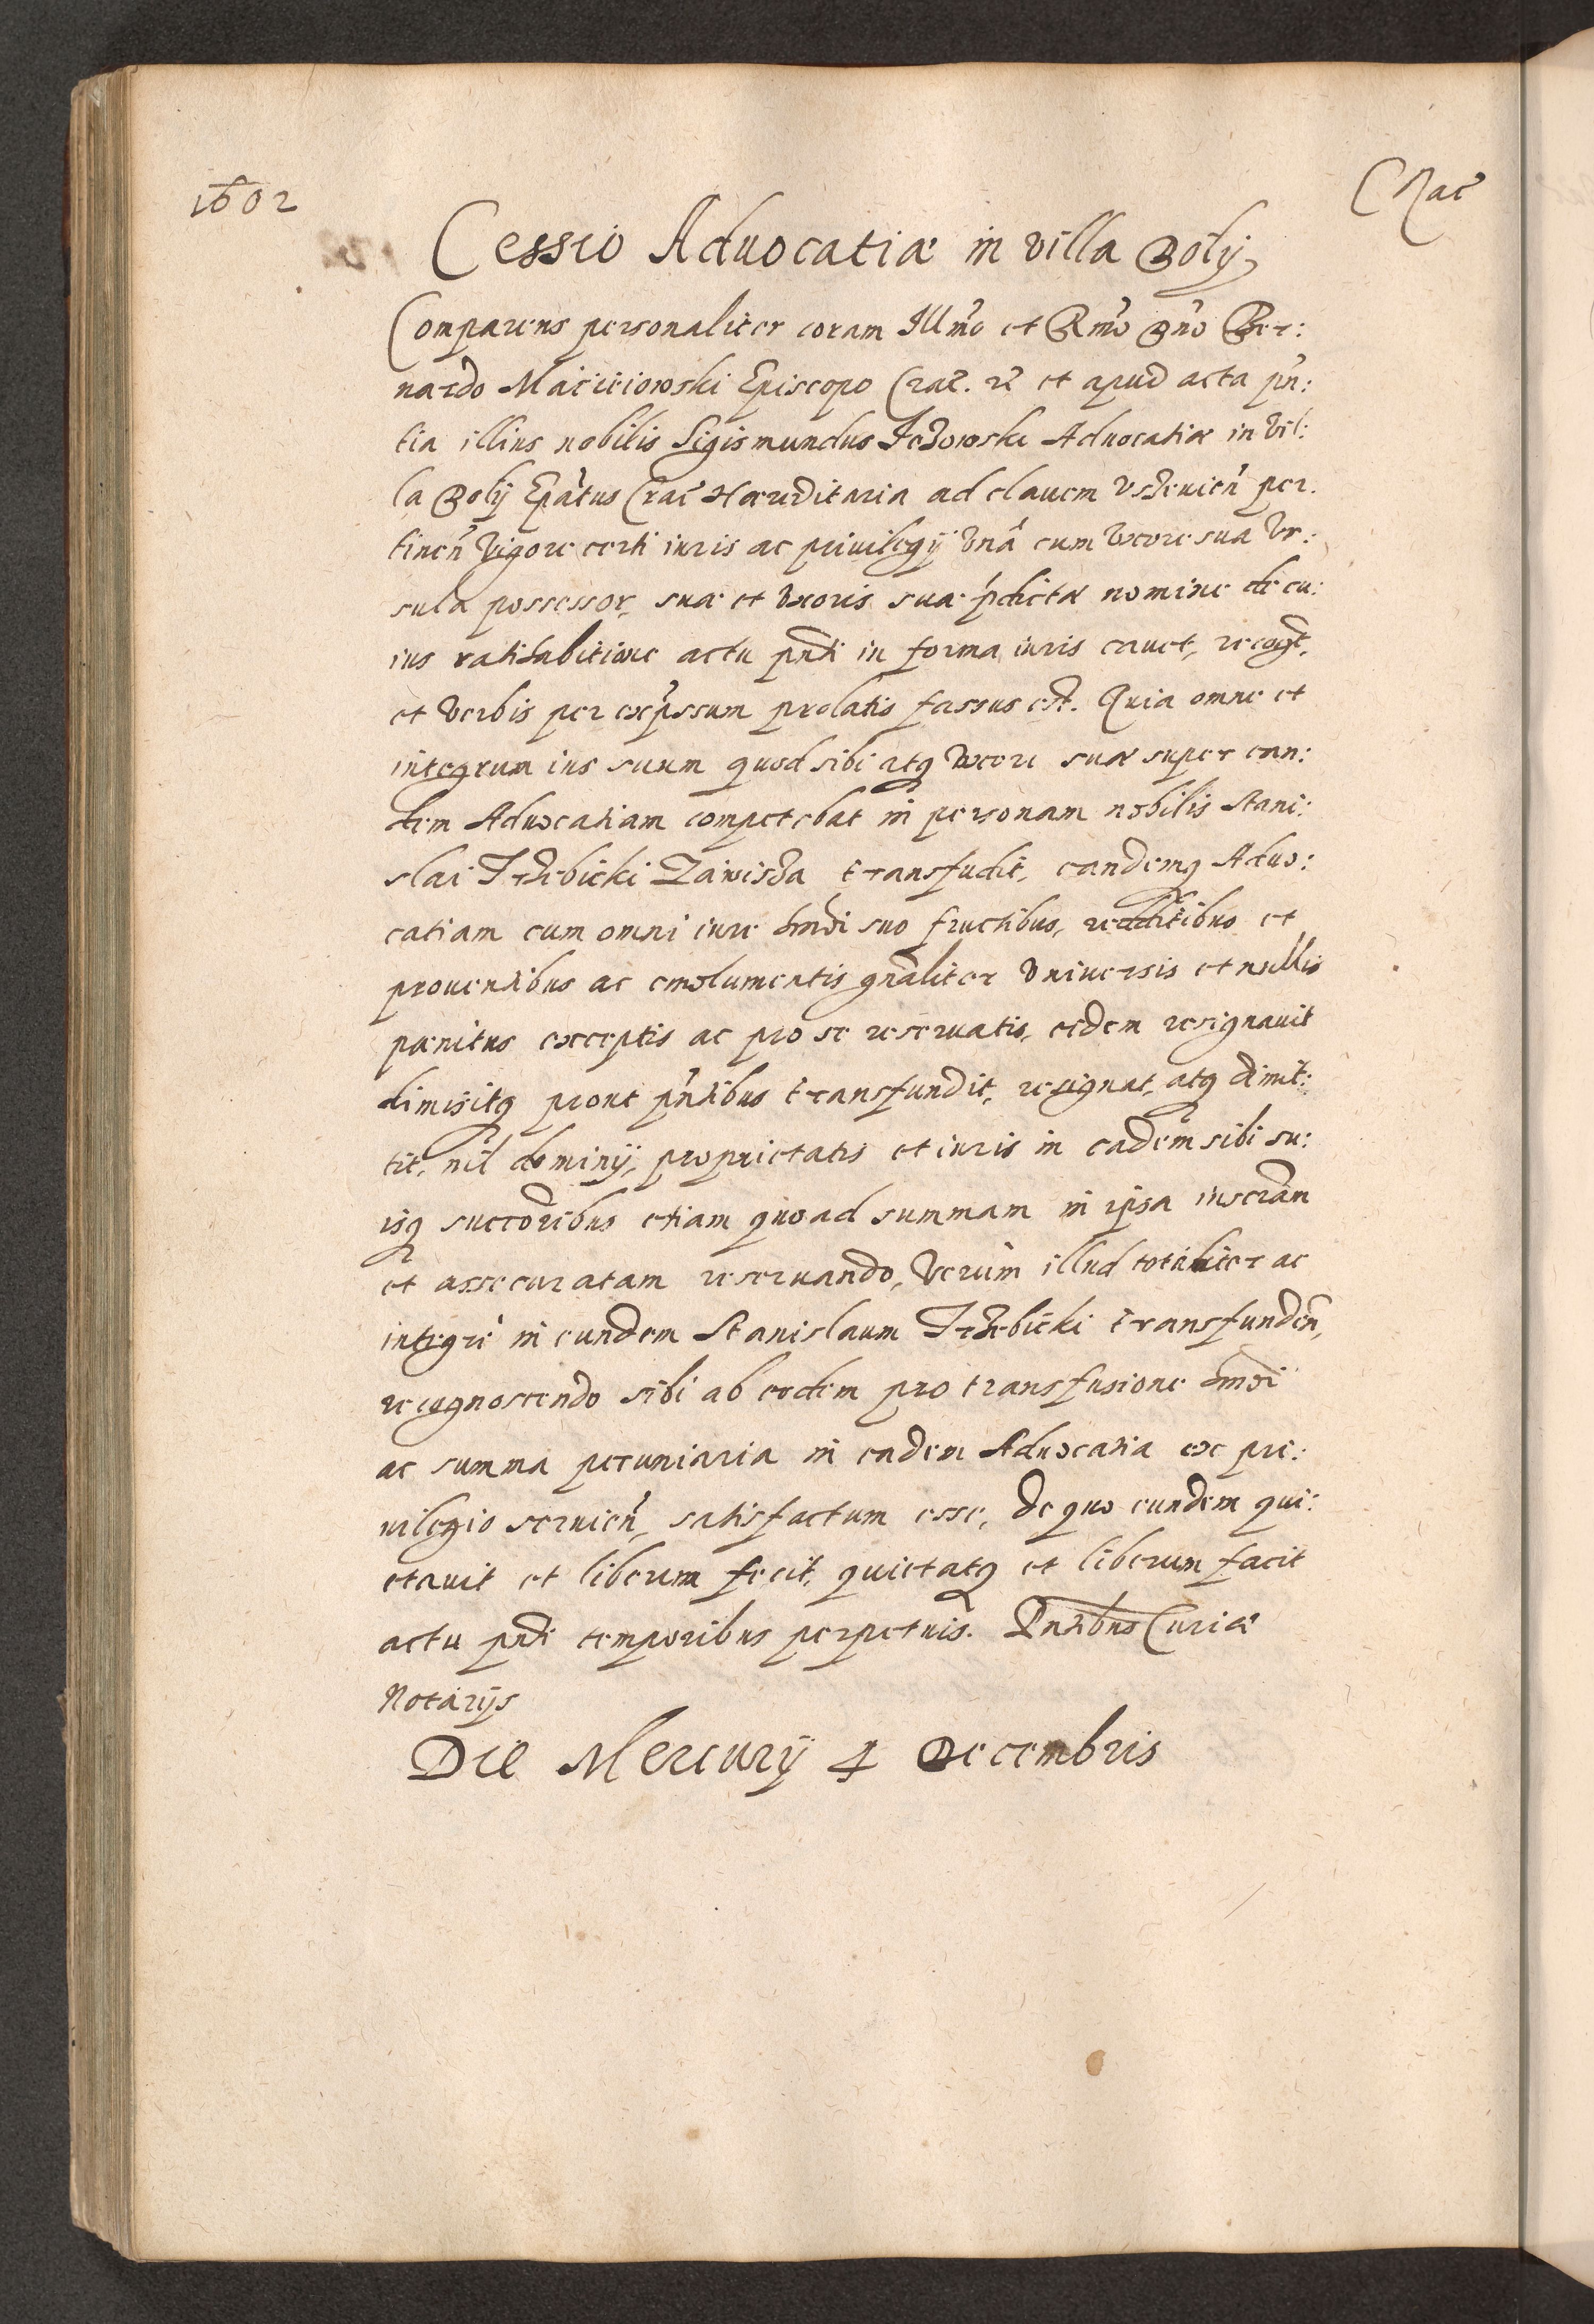 1602
Crac̃
Cessio Aduocatiæ in villa Boly
Comparens personaliter coram Illmo et Rmo Dno Ber:
nardo Macieiowski Episcopo Crac. et apud acta pn:
tia illius nobilis Sigismundus Aduocatiæ in vil:
la Boly Epatus Crac Hæreditariæ ad clauem per:
tinen vigore certi iuris ac priuilegij vnâ cum vxore sua Vr:
sula possessor, suæ et vxoris suæ pdictæ nomine de cu:
ius ratihabitione actu pnti in forma iuris cauet, recogt,
et verbis per expssum prolatis fassus est. Quia omne et
integrum ius suum quod sibi atq vxori suæ super ean:
dem Aduocatiam competebat in personam nobilis Stani:
slai Trzebicki Zawisza transfudit, eandemq Aduo:
catiam cum omni iure hmdi suo fructibus, redditibus et
prouentibus ac emolumentis gnaliter vniuersis et nullis
pænitus exceptis ac pro se reseruatis, eidem resignauit
dimisitq prout pntibus transfundit, resignat, atq dimit:
tit, nil dominij, proprietatis et iuris in eadem sibi su:
isq succoribus etiam quoad summam in ipsa inscram
et assecuratam reseruando, verum illud totaliter ac
integrè in eundem Stanislaum Trzebicki transfunden,
recognoscendo sibi ab eodem pro transfusione hmdi
ac summa pecuniaria in eadem Aduocatia ex pri:
uilegio seruien, satisfactum esse, de quo eundem qui:
etauit et liberum fecit, quietatq et liberum facit
actu pnti temporibus perpetuis. Pntibus Curiæ
Notarijs
Die Mercurij 4 Decembris